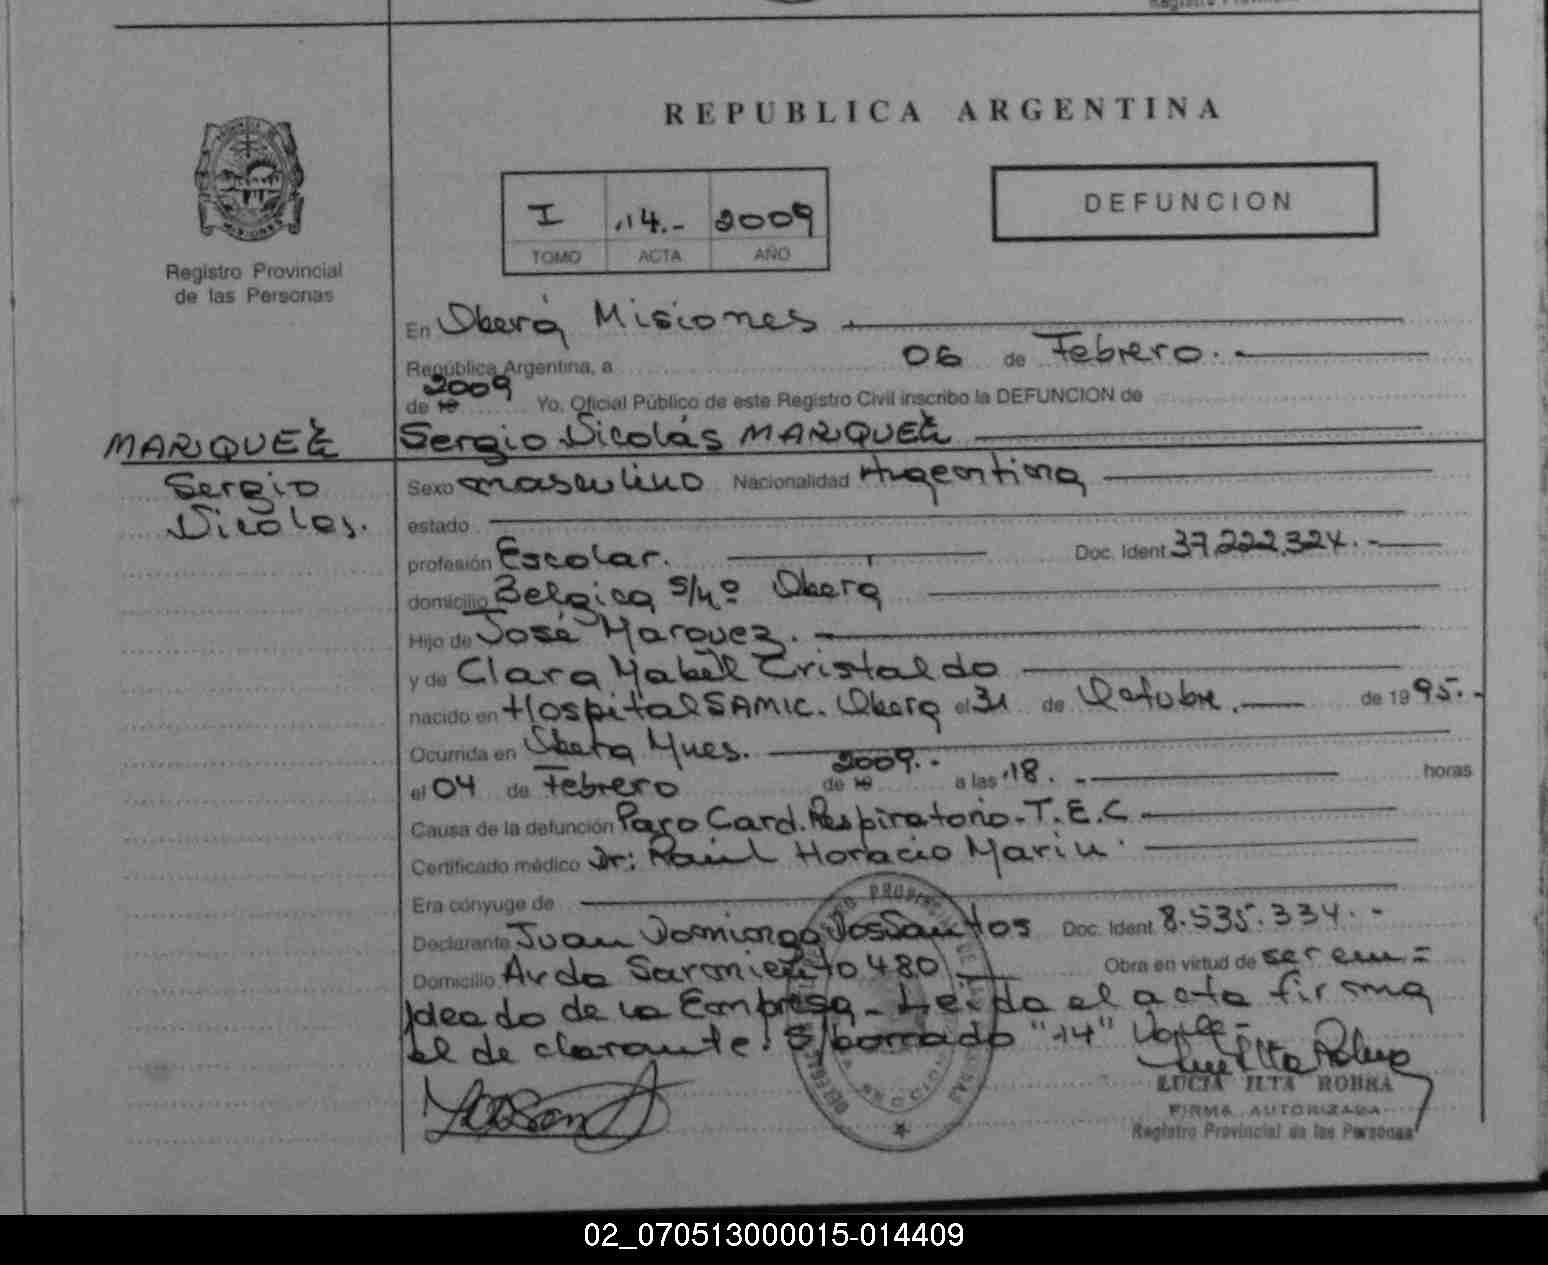 REPUBLICA ARGENTINA
DEFUNCION
I .14.- 2009
TOMO ACTA AÑO
Registro Provincial
de las Personas
En Oberá Misiones
República Argentina, a 06 de Febrero.-
2009
de 19 Yo, Oficial Público de este Registro Civil inscribo la DEFUNCION de
MARQUEZ
Sergio Nicolás MARQUEZ
Sergio
Nicolas.
Sexo masculino Nacionalidad Argentina
estado
profesión Escolar. Doc. Ident 37.222.324.-
domicilio Belgica s/nº Obera
Hijo de José Marquez.
y de Clara Mabel Cristaldo
nacido en Hospital SAMIC. Obera el 31 de Octubre. de 19 95.-
Ocurrida en Obera Mnes.
el 04 de Febrero 2009.- de 19 a las 18. horas
Causa de la defunción Paro Card. Respiratorio. T.E.C
Certificado médico Dr: Raul Horacio Marin
Era cónyuge de
Declarante Juan Domingo Dos Santos Doc. Ident 8.535.334.-
Domicilio Avda Sarmiento 480 Obra en virtud de ser em=
pleado de la Empresa_ Leida el acta firma
el declarante. S/borrado "14" Vale-
LUCIA ILTA ROBRA
FIRMA AUTORIZADA
Registro Provincial de las Personas
02_070513000015-014409